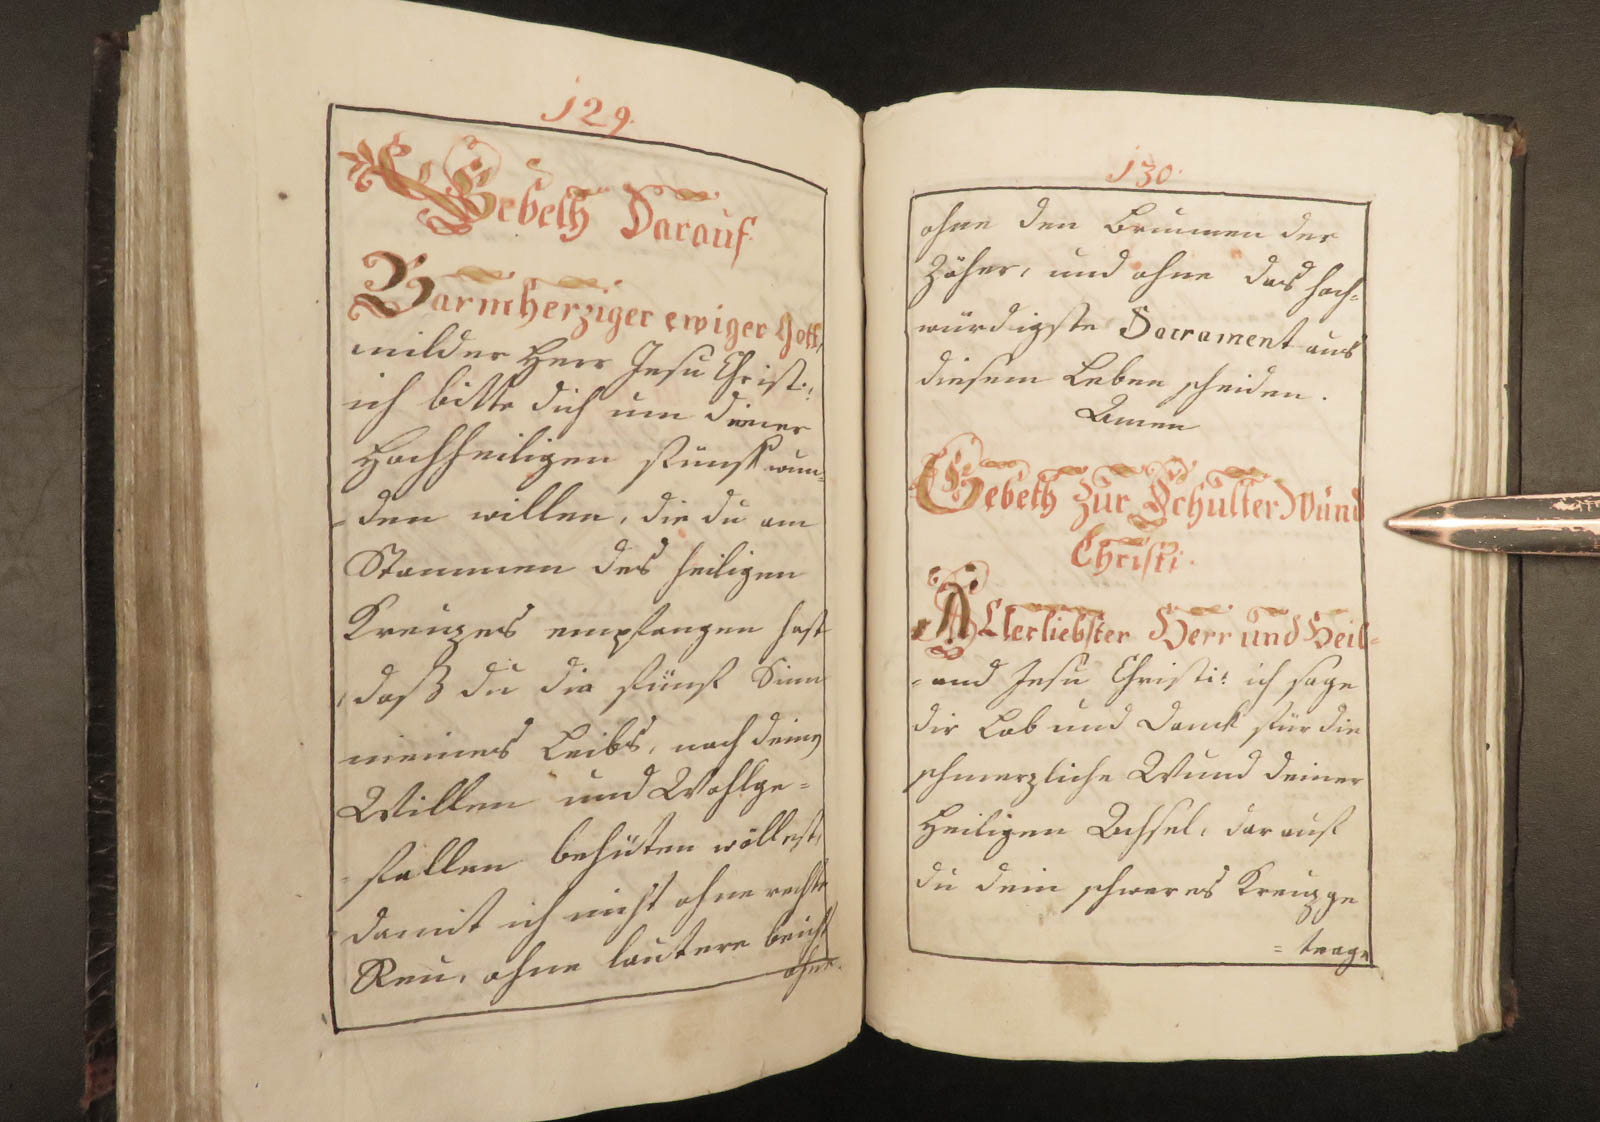 129.
Gebeth Darauf.
Barmherziger ewiger Gott,
milder Herr Jesu Christi,
ich bitte dich um deiner
Hochheiligen fünff wun=
=den willen, die du am
Stammen des heiligen
Kreuzes empfangen hast
daß du die fünf Sinn
meines Leibs, nach deinen
Willen und Wohlge=
=fallen behüten wöllest,
damit ich nicht ohne rechte
Reu, ohne lautere beicht
ohne
130.
ohne den Brunnen der
Zäher, und ohne das hoch=
würdigste Sacrament aus
diesem Leben scheiden.
Amen
Gebeth Zur Schulter Wund
Christi.
Allerliebster Herr und Heil=
=and Jesu Christi: ich sage
dir Lob und Danck für die
schmerzliche Wund deiner
Heiligen Achsel, darauf
du dein schweres Kreuz ge
=trage